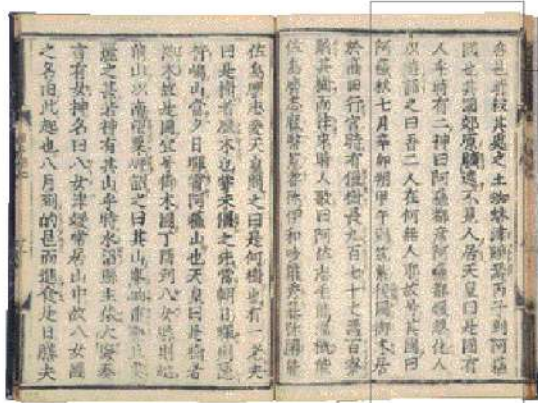 名邑時殺其處之土蜘蛛津頰焉丙子到阿蘇
國也其國郊原曠遠不見人居天皇曰是國有
人乎時有二神曰阿蘇都彥阿蘇都媛忽化人
以遊詣之曰吾二人在何無人耶故號其國曰
阿蘇秋七月辛卯朔甲午到筑紫後國御木居
於高田行宮時有僵樹長九百七十丈焉百寮
蹈其樹而往來時人歌曰阿佐志毛能瀰概能
佐烏麼志魔幣菟耆瀰伊和哆羅秀暮瀰開能
佐烏麼志爰天皇問之曰是何樹也有一老夫
曰是樹者歷木也嘗未僵之先當朝日暉則隱
杵嶋山當夕日暉覆阿蘇山也天皇曰是樹者
神木故是國宜號御木國丁酉到八女縣則越
前山以南望粟岬詔之曰其山峯岫重疊且美
麗之甚若神有其山乎時水沼縣主猿大海奏
言有女神名曰八女津媛常居山中故八女國
之名由此起也八月到的邑而進食是日膳夫